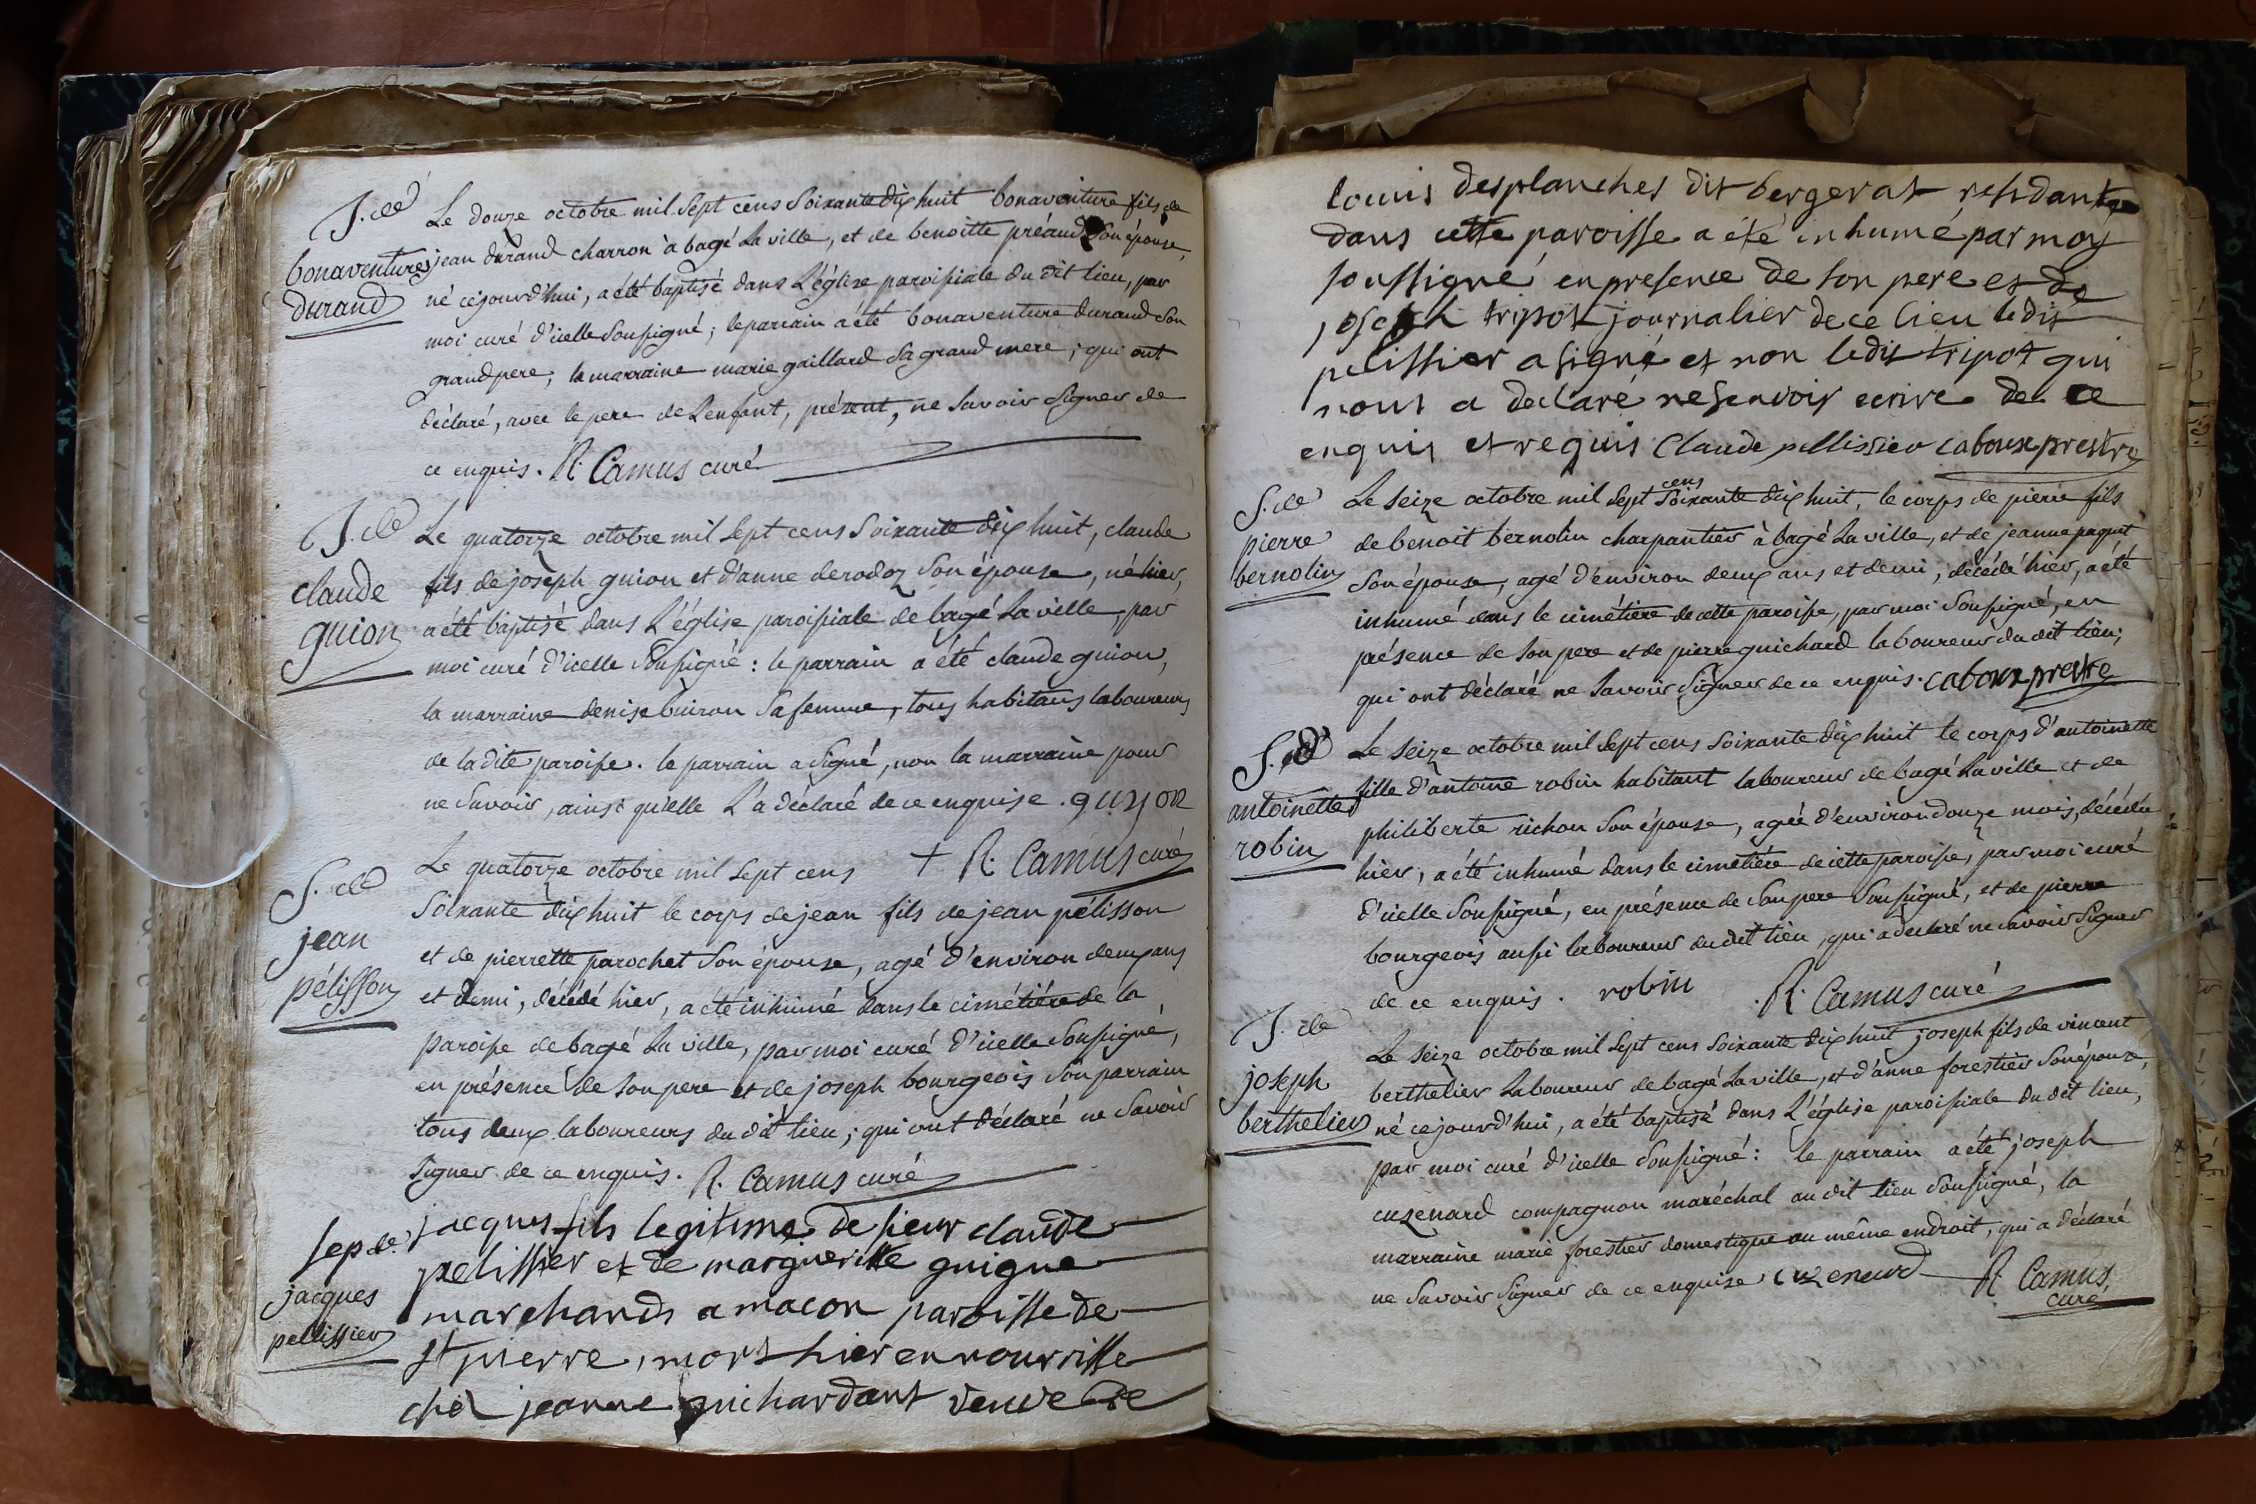 B. de
bonaventure
durand
Le douze octobre mil sept cens soixante dix huit bonaventure fils de
jean durand charron à bagé la ville, et de benoitte préaud son épouse,
né cejourd'hui, a été baptisé dans l'église paroissiale du dit lieu, par
moi curé d'icelle soussigné; le parrain a été bonaventure durand son
grand pere, la marraine marie gaillard sa grand mere; qui ont
déclaré, avec le pere de l'enfant, présent, ne savoir signer de
ce enquis. R. Camus curé
B. de
claude
guion
Le quatorze octobre mil sept cens soixante dix huit, claude
fils de joseph guion et d'anne derodoz son épouse, né hier,
a été baptisé dans l'église paroissiale de bagé la ville, par
moi curé d'icelle soussigné: le parrain a été claude guion,
la marraine denise buiron sa femme, tous habitans laboureurs
de la dite paroisse. le parrain a signé, non la marraine pour
ne savoir, ainsi qu'elle l'a déclaré de ce enquise. guyon
+ R. Camus curé
S. de
jean
pélisson
Le quatorze octobre mil sept cens
soixante dix huit le corps de jean fils de jean pélisson
et de pierrette parochet son épouse, agé d'environ deux ans
et demi, décédé hier, a été inhumé dans le cimétiére de la
paroisse de bagé la ville, par moi curé d'icelle soussigné,
en présence de son pere et de joseph bourgeois son parrain
tous deux laboureurs du dit lieu; qui ont déclaré ne savoir
signer de ce enquis. R. Camus curé
sep de
jacques
pellissier
jacques fils legitime de sieur claude
pelissier et de margueritte guigue
marchands a macon paroisse de
st pierre, mort hier en nourrisse
chez jeanne guichardant veuve de
louis desplanches dit bergerat residant
dans cette paroisse a été inhumé par moy
soussigné en presence de son pere et de
joseph tripot journalier de ce lieu ledit
pelissier a signé et non ledit tripot qui
nous a declaré ne scavoir ecrire de ce
enquis et requis Claude pellissier caboux prestre
S. de
pierre
bernolin
Le seize octobre mil sept cens soixante dix huit, le corps de pierre fils
de benoit bernolin charpantier à bagé la ville, et de jeanne paquet
son épouse, agé d'environ deux ans et demi, décédé hier, a été
inhumé dans le cimétiére de cette paroisse, par moi soussigné, en
présence de son pere et de pierre guichard laboureur du dit lieu;
qui ont déclaré ne savoir signer de ce enquis. caboux prestre
S. de
antoinette
robin
Le seize octobre mil sept cens soixante dix huit le corps d'antoinette
fille d'antoine robin habitant laboureur de bagé la ville et de
philiberte richon son épouse, agée d'environ douze mois, décédée
hier, a été inhumé dans le cimetiére de cette paroisse, par moi curé
d'icelle soussigné, en présence de son pere soussigné, et de pierre
bourgeois aussi laboureur du dit lieu, qui a déclaré ne savoir signer
de ce enquis. robin R. Camus curé
B. de
joseph
berthelier
Le seize octobre mil sept cens soixante dix huit joseph fils de vincent
berthelier laboureur de bagé la ville, et d'anne forestier son épouse,
né cejourd'hui, a été baptisé dans l'église paroissiale du dit lieu,
par moi curé d'icelle soussigné: le parrain a été joseph
cuzenard compagnon maréchal au dit lieu soussigné, la
marraine marie forestier domestique au même endroit, qui a déclaré
ne savoir signer de ce enquise cuzenard R Camus
curé